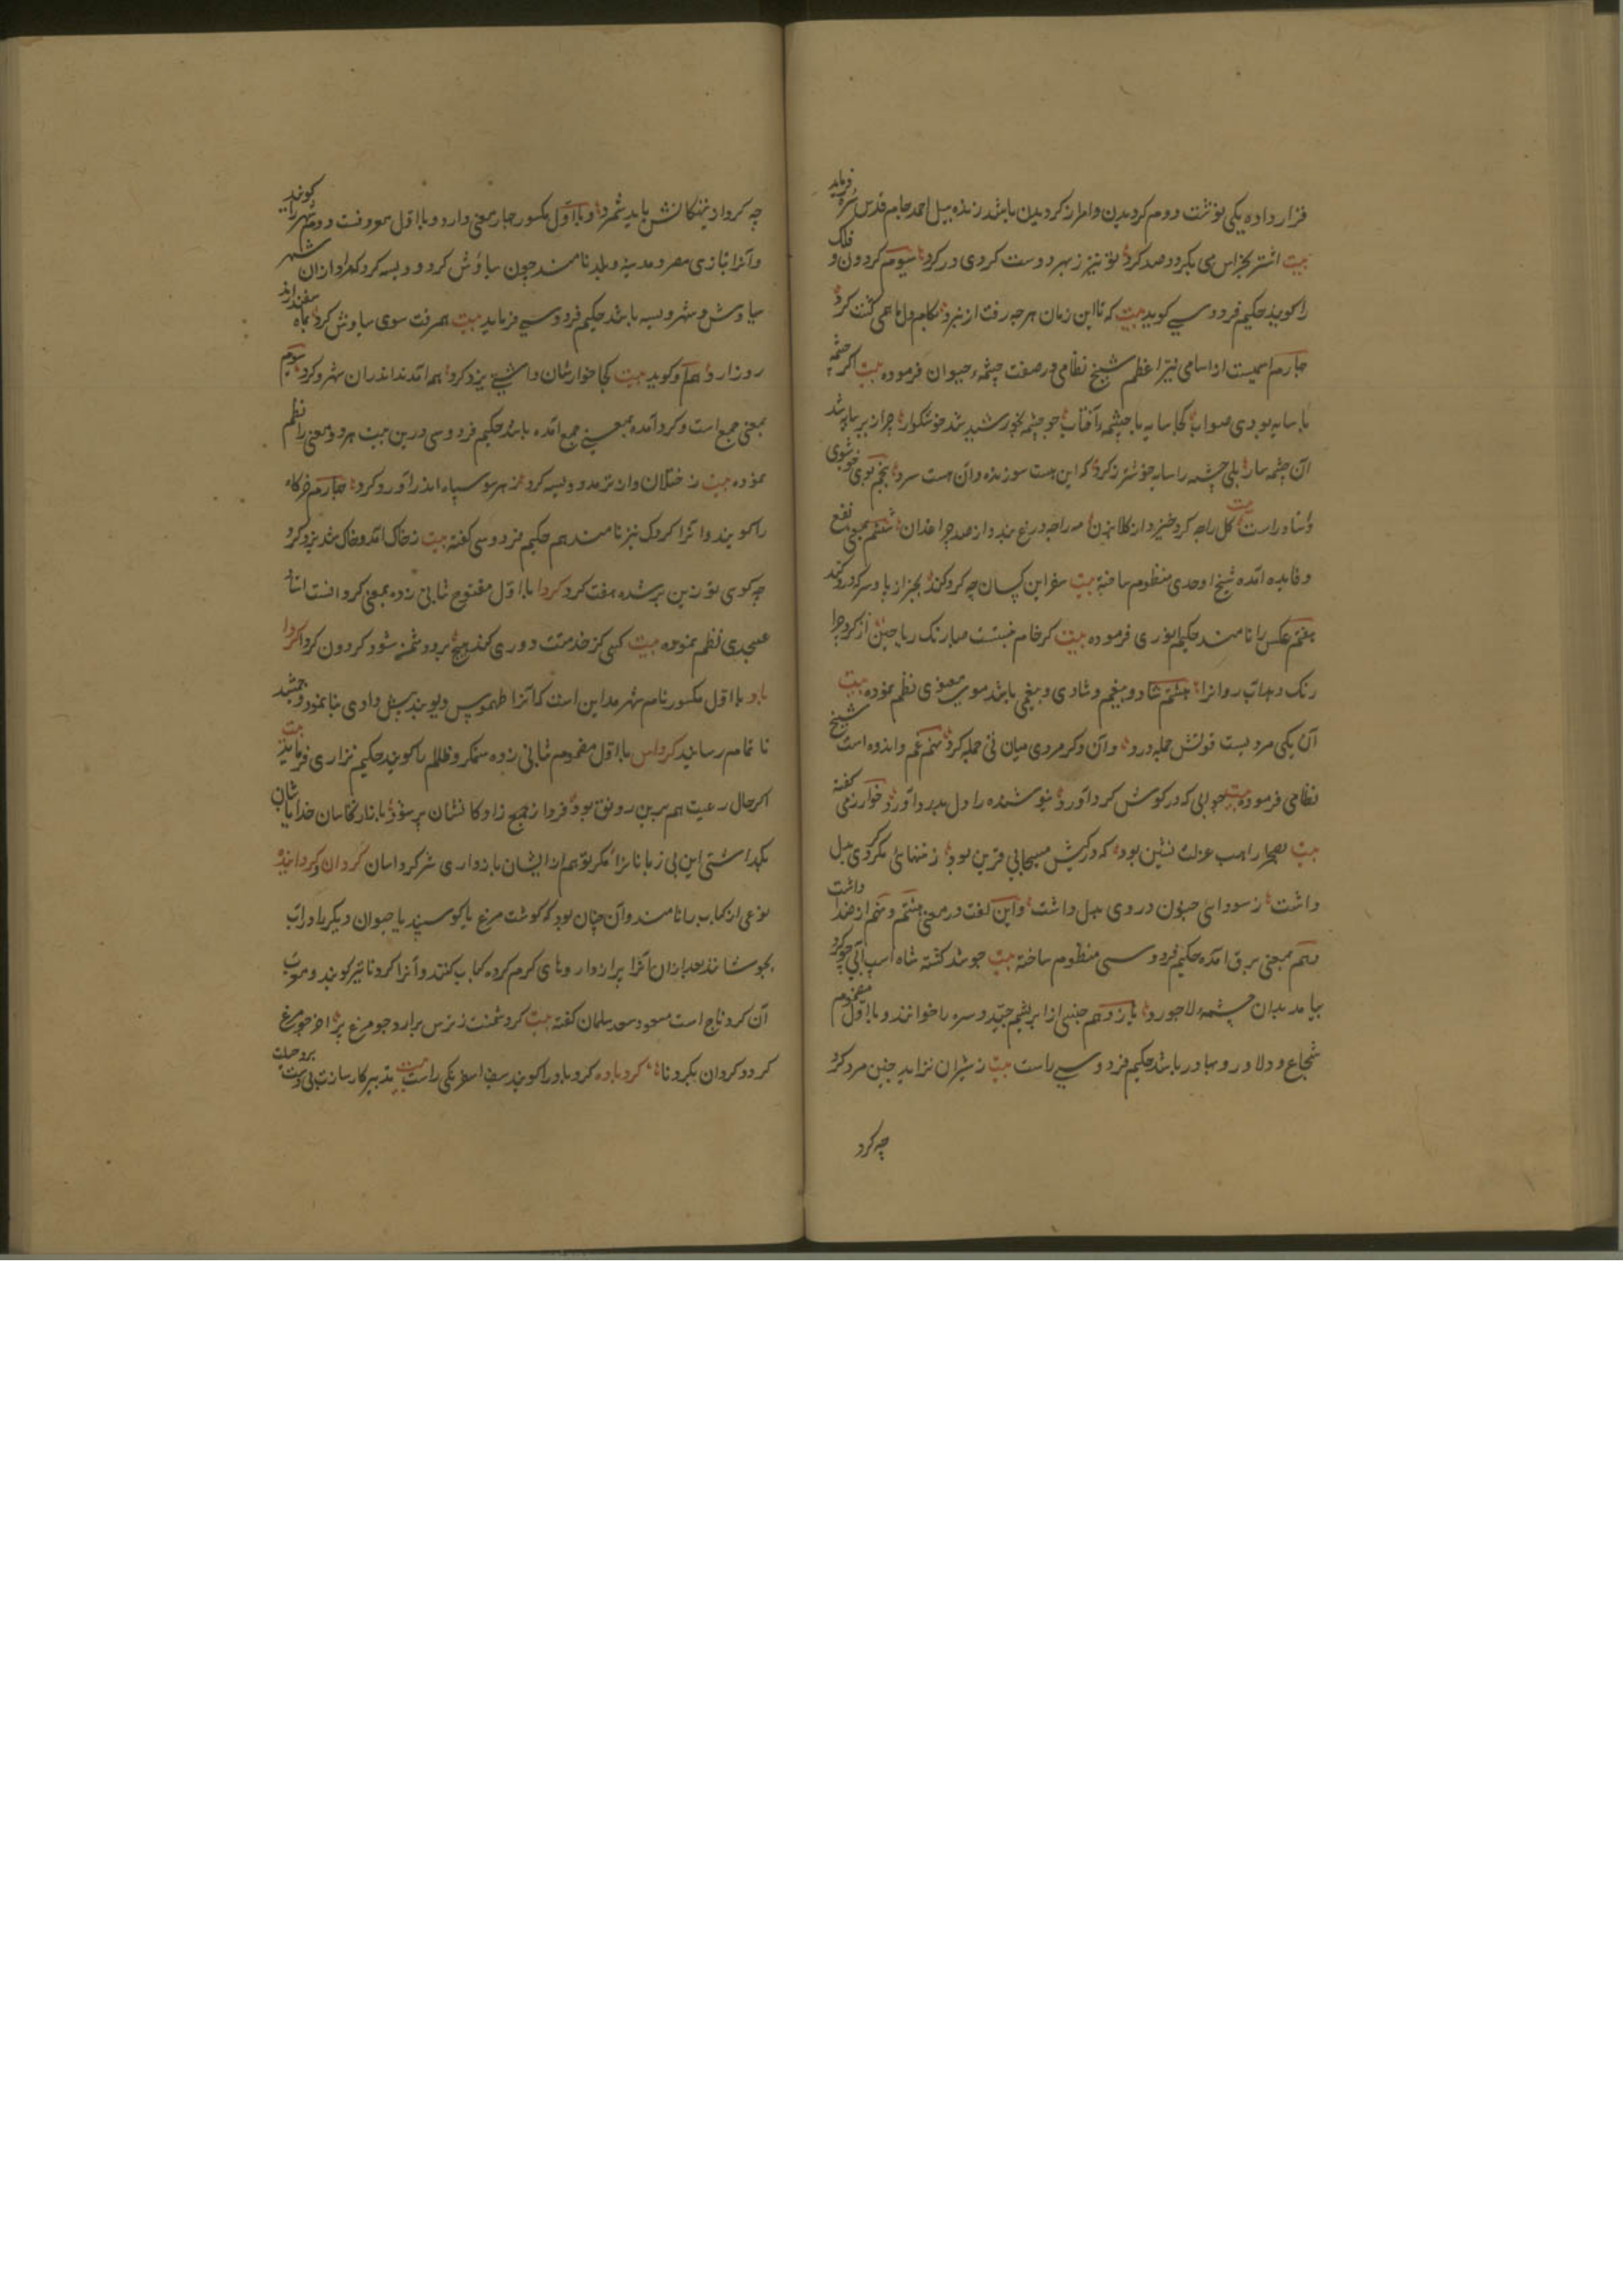 قرار داده یکی نوشت دوم کردیدن و امر از کردیدن باشد زنده پیل احمد جام قدس سره فرماید
بیت اشتر بخراس می بگردد صد کرد تو نیز ز بهر دوست کردی در کرد سیوم کردون و فلک
را کویند حکیم فردوسی کوید بیت که تا این زمان هر چه رفت از نبرد بکام دل ما همی کشت کرد
چارم اسمیست از اسامی نیر اعظم شیخ نظامی در صفت چشمه حیوان فرموده بیت اکر چشمه
با سایه بودی صواب کجا سایه با چشمه آفتاب چو چشمه بخورشید شد خوشکوار چرا زیر سایه شد
آن چشمه سار بلی چشمه را سایه خوشتر ز کرد که این هست سوزنده و آن هست سرد پنجم بوی خوش بوی
کل راچه کرد خیزد از کلاب زن مه راچه ورغ بندد از صد چراغدان ششم بمعنی نفع
و فایده آمده شیخ اوحدی منظوم ساخته بیت سفر این کسان چه کرد کند بجز از پا و سر که درد کند
هفتم عکس را نامند حکیم انوری فرموده بیت
رنک دهد آب روانرا هشتم شاد و بیغم و شادی و بیغمی باشد مولوی معنوی نظم نموده بیت
آن یکی مردیست قوتش جمله درد و آن دکر مردی میان تی جمله کرد نهم غم و اندوه است شیخ
نظامی فرموده بیت جوابی که در کوش کرد آورد نیوشنده را دل بدرد آورد خوارزمی کفته
بیت بصحرا راهب عزلت نشین بود که در کیش مسیحایی قرین بود ز تنهایی مکر کردی بدل
داشت ز سودای جنون دردی بدل داشت و این لغت در معنی هشتم و نهم از اضداد است
دهم بمعنی برق آمده حکیم فردوسی منظوم ساخته بیت چو شد کشته شاه اسب آبی چو کرد
بیامد بدان چشمه لاجورد یازدهم جنسی از ابریشم جید و سره را خوانند و با اول مضموم
شجاع و دلاور و بهادر باشد حکیم فردوسی راست بیت ز شیران نزاید چنین مرد کرد
چه کرد
چه کرد از بزرکانش باید شمرد و با اول مکسور چار معنی دارد و با اول معروفست دوم شهر را کویند
و آنرا بتازی مصر و مدینه و بلد نامند چون سیاوش کرد و ویسه کرد که مراد از آن شهر
سیاوش و شهر ویسه باشد حکیم فردوسی فرماید بیت همی رفت سوی سیاوش کرد بماه سفندارمذ
روز ارد هم او کوید بیت کجا خوارشان واشتی یزدکرد همه آمدند اندران شهر و کرد سیوم
بمعنی جمع است و کرد آمده بمعنی جمع آمده باشد حکیم فردوسی درین بیت هر دو معنی را نظم
نموده بیت ز ختلان و از ترمد و ویسه کرد ز هر سو سپاه اندر آورد کرد چارم خرکاه
را کویند و آنرا کردک نیز نامند هم حکیم فردوسی کفته بیت ز خاک آمد و خاک شد یزدکرد
چه کوی تو زین بر شده هفت کرد کردا با اول مفتوح بثانی زده بمعنی کرداست استاد
عسجدی نظم نموده بیت کسی کز خدمتت دوری کند هیچ برو دشمن شود کردون کردا کردا
باد با اول مکسور نام شهر مداین است که آنرا طهمورس دیوبند پیشدادی بنا نمود و جمشید
با تمام رسانید کرداس با اول مضموم بثانی زده ستمکر و ظالم را کویند حکیم نزاری فرماید بیت
اکر حال رعیت هم برین رونق بود فردا ز جمع زاد کانشان پر شود بازار نخاسان خدایا
بکداشتی این بی زبانانرا مکر تو هم از ایشان باز داری شر کرداسان کردان و کردانیده
نوعی از کباب را نامند و آن چنان بود که کوشت مرغ یا کوسپند یا حیوان دیکر را در آب
بجوشانند بعد از آن آنرا پر از دارو های کرم کرده کباب کنند و آنرا کردنا نیز کویند و معرب
آن کردناج است مسعود سعد سلمان کفته بیت کر دشمنت ز ترس برآرد چو مرغ پر آخر چو مرغ
کردد کردان بکردنا کردباده کردباد را کویند سیف اسفرنکی راست بیت تدبیر کار سازت بی دست برد حیلت